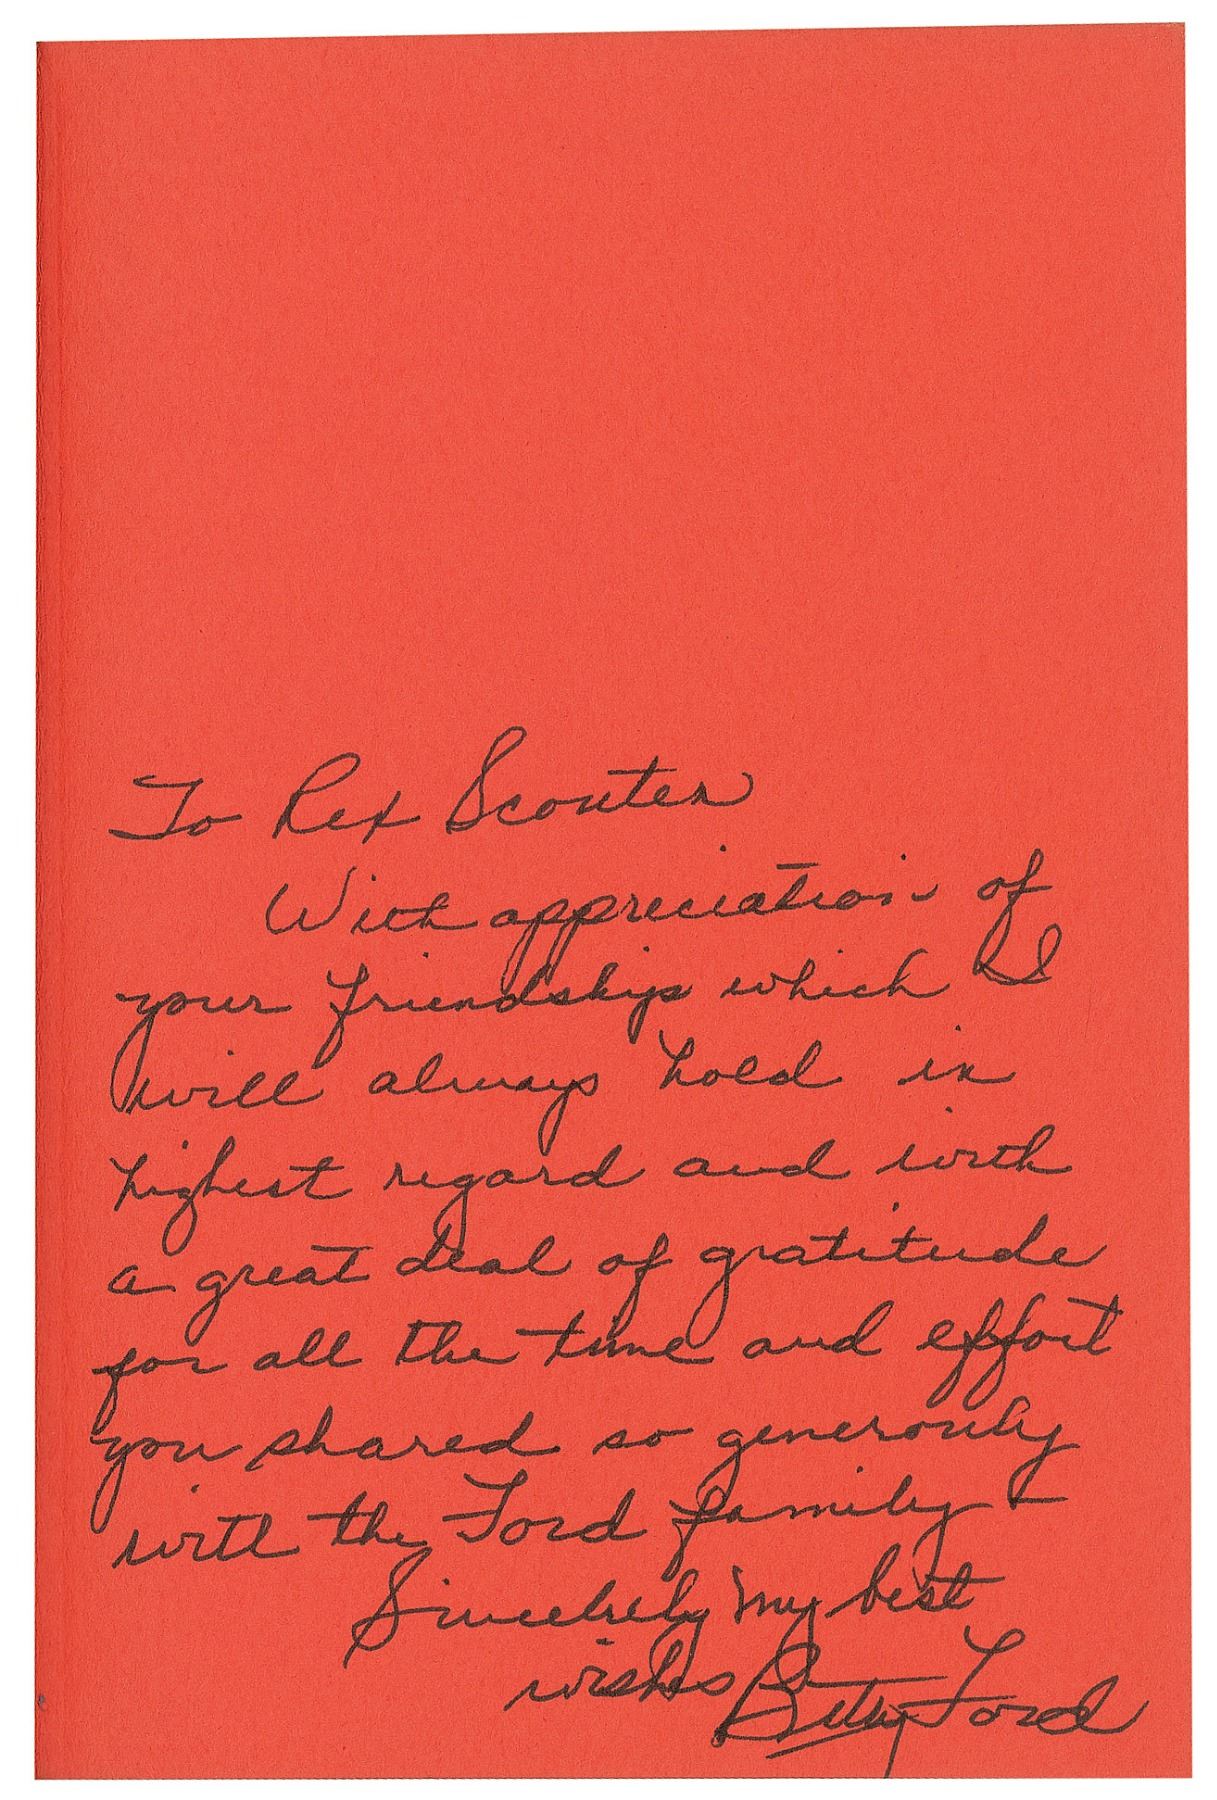 To Rex Scouten
With appreciation of
your friendship which I
will always hold in
highest regard and with
a great deal of gratitude
for all the time and effort
you shared so generously
with the Ford family –
Sincerely my best
wishes Betty Ford